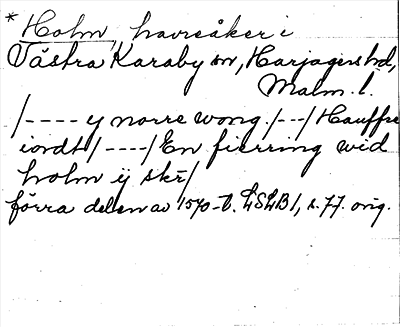 *Holm, havreåker i
Västra Karaby sn, Harjagers hd,
Malm. l.
/---- y norre wong. /--/ Hauffre
iordt /----/ En fierring wid
holm ij skr/
förra delen av 1570-t. LSLB 1, s. 77. orig.